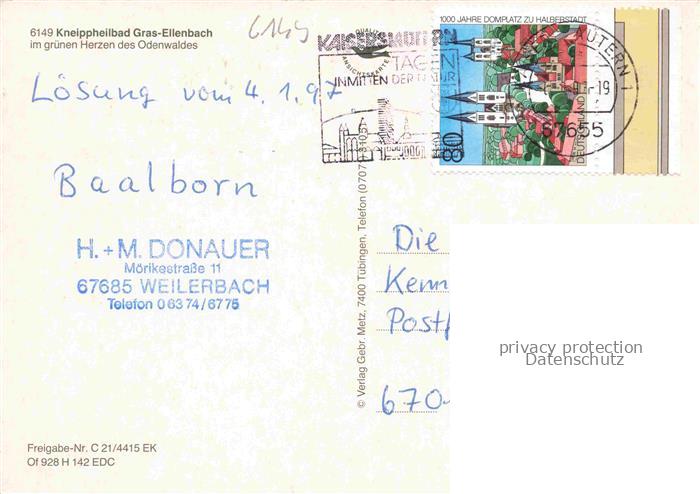 6149 Kneippheilbad Gras-Ellenbach
im grünen Herzen des Odenwaldes
6149
QUALITÄTS
ANSICHTSKARTE
TAG
INMITTEN DER
1000 JAHRE DOMPLATZ ZU HALBERSTADT
DEUTSCHLAND
80
LAUTERN 1
-19
67655
Lösung vom 4.1.97
Baalborn
H. + M. DONAUER
Mörikestraße 11
67685 WEILERBACH
Telefon 0 63 74 / 67 75
© Verlag Gebr. Metz, 7400 Tübingen, Telefon (0707
Die
Kenn
Post
670
privacy protection
Datenschutz
Freigabe-Nr. C 21/4415 EK
Of 928 H 142 EDC